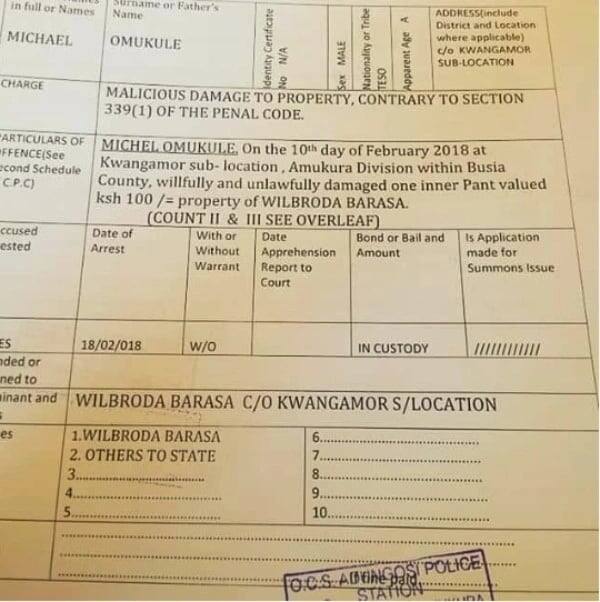 in full or Names
Surname or Father's
Name
Identity Certificate
No N/A
Sex MALE
Nationality or Tribe
TESO
Apparent Age A
ADDRESS(include
District and Location
where applicable)
c/o KWANGAMOR
SUB-LOCATION
MICHAEL
OMUKULE
CHARGE
MALICIOUS DAMAGE TO PROPERTY, CONTRARY TO SECTION
339(1) OF THE PENAL CODE.
ARTICULARS OF
FFENCE(See
econd Schedule
C.P.C)
MICHEL OMUKULE. On the 10th day of February 2018 at
Kwangamor sub- location , Amukura Division within Busia
County, willfully and unlawfully damaged one inner Pant valued
ksh 100 /= property of WILBRODA BARASA.
(COUNT II & III SEE OVERLEAF)
ccused
ested
Date of
Arrest
With or
Without
Warrant
Date
Apprehension
Report to
Court
Bond or Bail and
Amount
Is Application
made for
Summons Issue
ES
18/02/018
W/O
IN CUSTODY
////////////
nded or
ned to
inant and
s
WILBRODA BARASA C/O KWANGAMOR S/LOCATION
es
1.WILBRODA BARASA
2. OTHERS TO STATE
3..............................
4..............................
5..............................
6..............................
7..............................
8..............................
9..............................
10..............................
O.C.S. POLICE
STATION